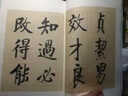 貞絜男
效才良
知過必
改得能